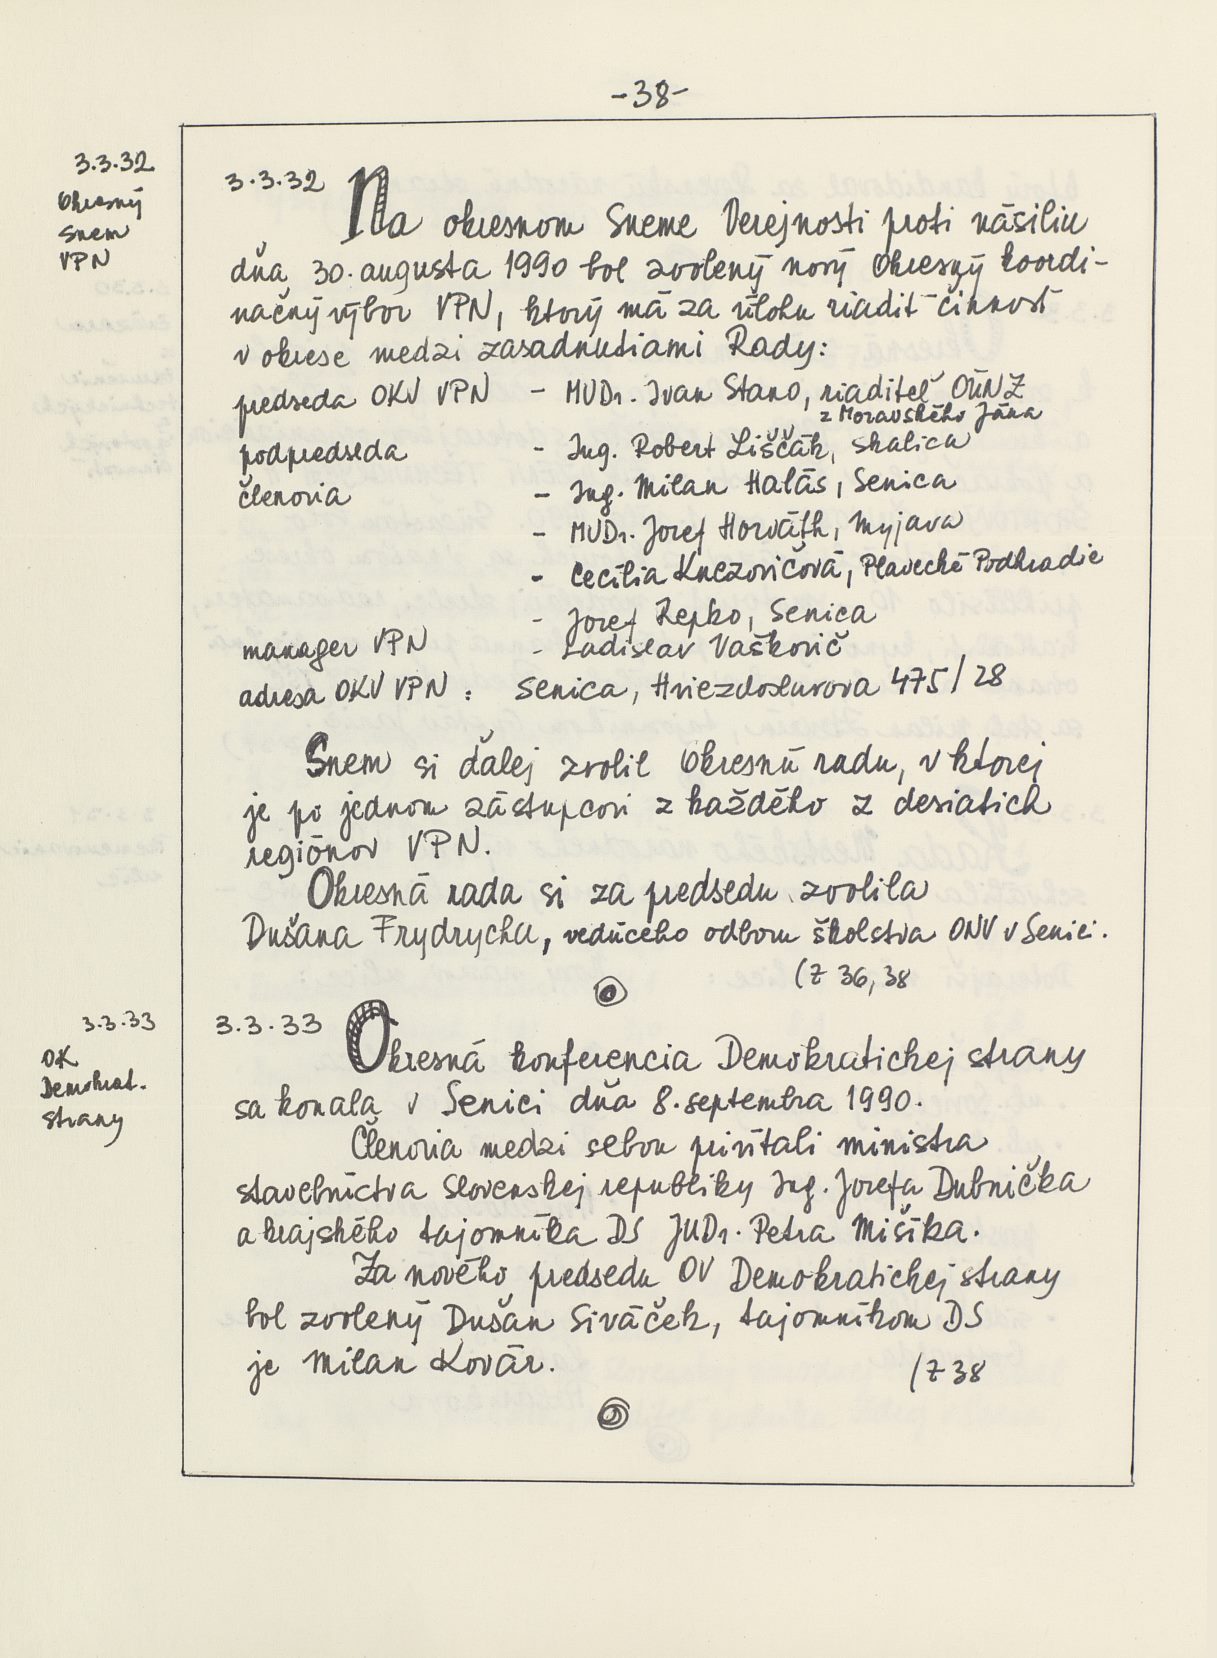 -38-
3.3.32
Okresný
snem
VPN
3.3.32 Na okresnom Sneme Verejnosti proti násiliu
dňa 30. augusta 1990 bol zvolený nový Okresný koordi-
načný výbor VPN, ktorý má za úlohu riadiť činnosť
v okrese medzi zasadnutiami Rady:
predseda OKV VPN - MUDr. Ivan Stano, riaditeľ OÚNZ
z Moravského Jána
podpredseda - Ing. Robert Liščák, Skalica
členovia - Ing. Milan Halás, Senica
- MUDr. Jozef Horváth, Myjava
- Cecília Knezovičová, Plavecké Podhradie
- Jozef Repko, Senica
manager VPN - Ladislav Vaškovič
adresa OKV VPN : Senica, Hviezdoslavova 475/28
Snem si ďalej zvolil Okresnú radu, v ktorej
je po jednom zástupcovi z každého z desiatich
regiónov VPN.
Okresná rada si za predsedu zvolila
Dušana Frydrycha, vedúceho odboru školstva ONV v Senici.
(Z 36, 38
3.3.33
OK
Demokrat.
strany
3.3.33 Okresná konferencia Demokratickej strany
sa konala v Senici dňa 8. septembra 1990.
Členovia medzi sebou privítali ministra
stavebníctva Slovenskej republiky Ing. Jozefa Dubníčka
a krajského tajomníka DS JUDr. Petra Mišíka.
Za nového predsedu OV Demokratickej strany
bol zvolený Dušan Siváček, tajomníkom DS
je Milan Kovár.
(Z 38